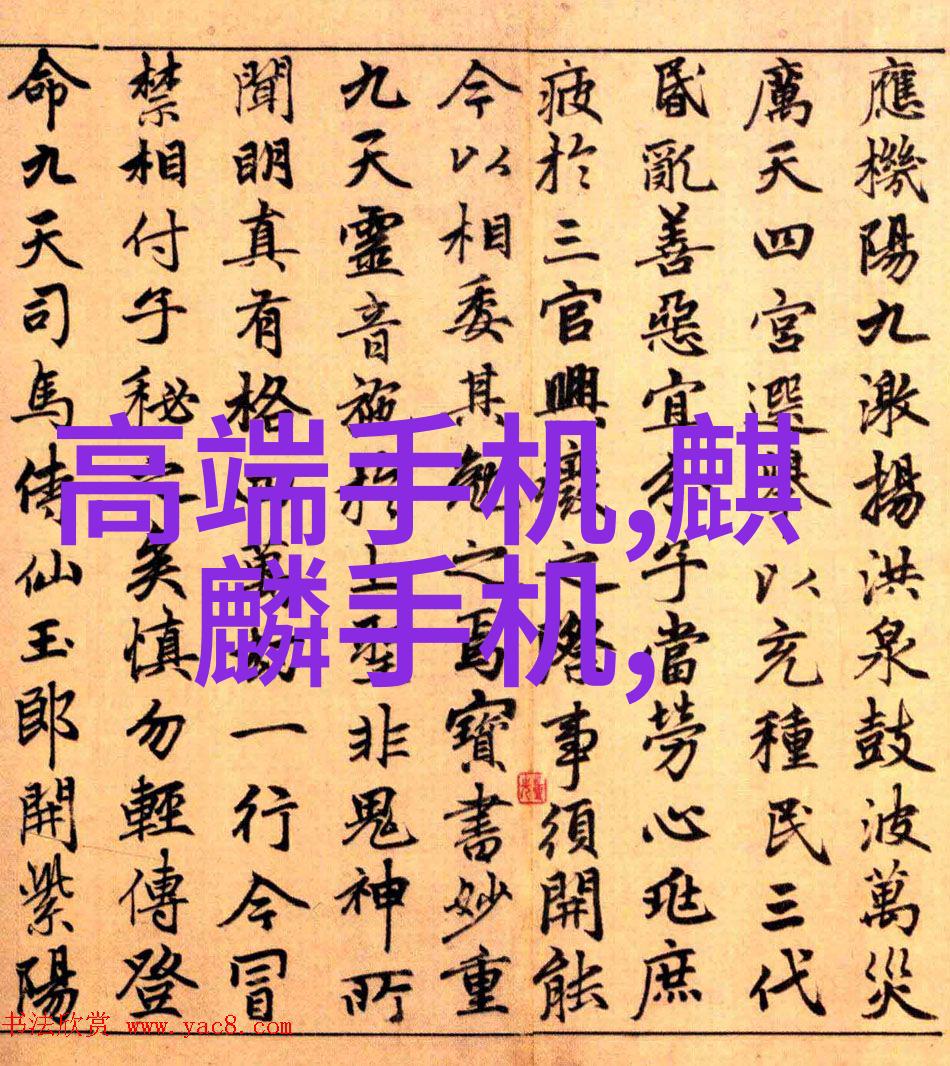 應機陽九激揚洪泉鼓波萬災
厲天四宮選舉以充種民三代
昏亂善惡宜分子當勞心兆庶
疲於三官興廢之際事須開能
今以相委其勉之焉寶書妙重
九天靈音施於上聖非鬼神所
聞明真有格四萬劫一行今冒
禁相付子秘之矣慎勿輕傳登
命九天司馬侍仙玉郎開紫陽
高端手机,麒
麟手机,
书法欣赏 www.yac8.com